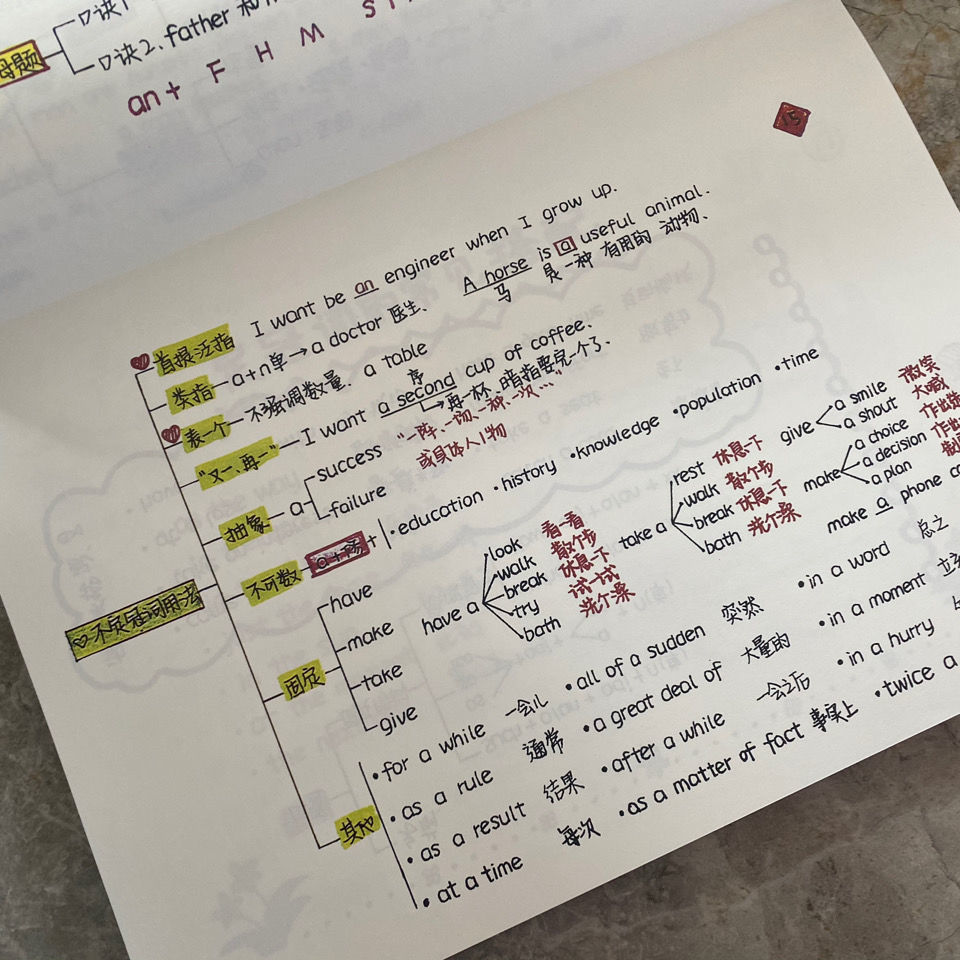 口诀1
母题
口诀2、father 和
an + F H M S
15
首提:泛指 I want be an engineer when I grow up.
类指 a+n单→a doctor 医生、 A horse is a useful animal.
马 是一种 有用的 动物、
表一个 不强调数量、a table
序
"又一、再一" I want a second cup of coffee.
→再一杯、暗指要完一个了、
抽象 a success "一阵、一场、一种、一次…"
failure 或具体人/物
不可数 +
•education •history •knowledge •population •time
固定
have
make
take
give
have a
look 看一看
walk 散个步
break 休息一下
try 试一试
bath 洗个澡
take a
rest 休息一下
walk 散个步
break 休息一下
bath 洗个澡
give
a smile 微笑
a shout 大喊
make
a choice
a decision
a plan
make a phone
不定冠词用法
其他
•for a while 一会儿 •all of a sudden 突然 •in a word 总之
•as a rule 通常 •a great deal of 大量的 •in a moment
•as a result 结果 •after a while 一会之后 •in a hurry
•at a time 每次 •as a matter of fact 事实上 •twice a